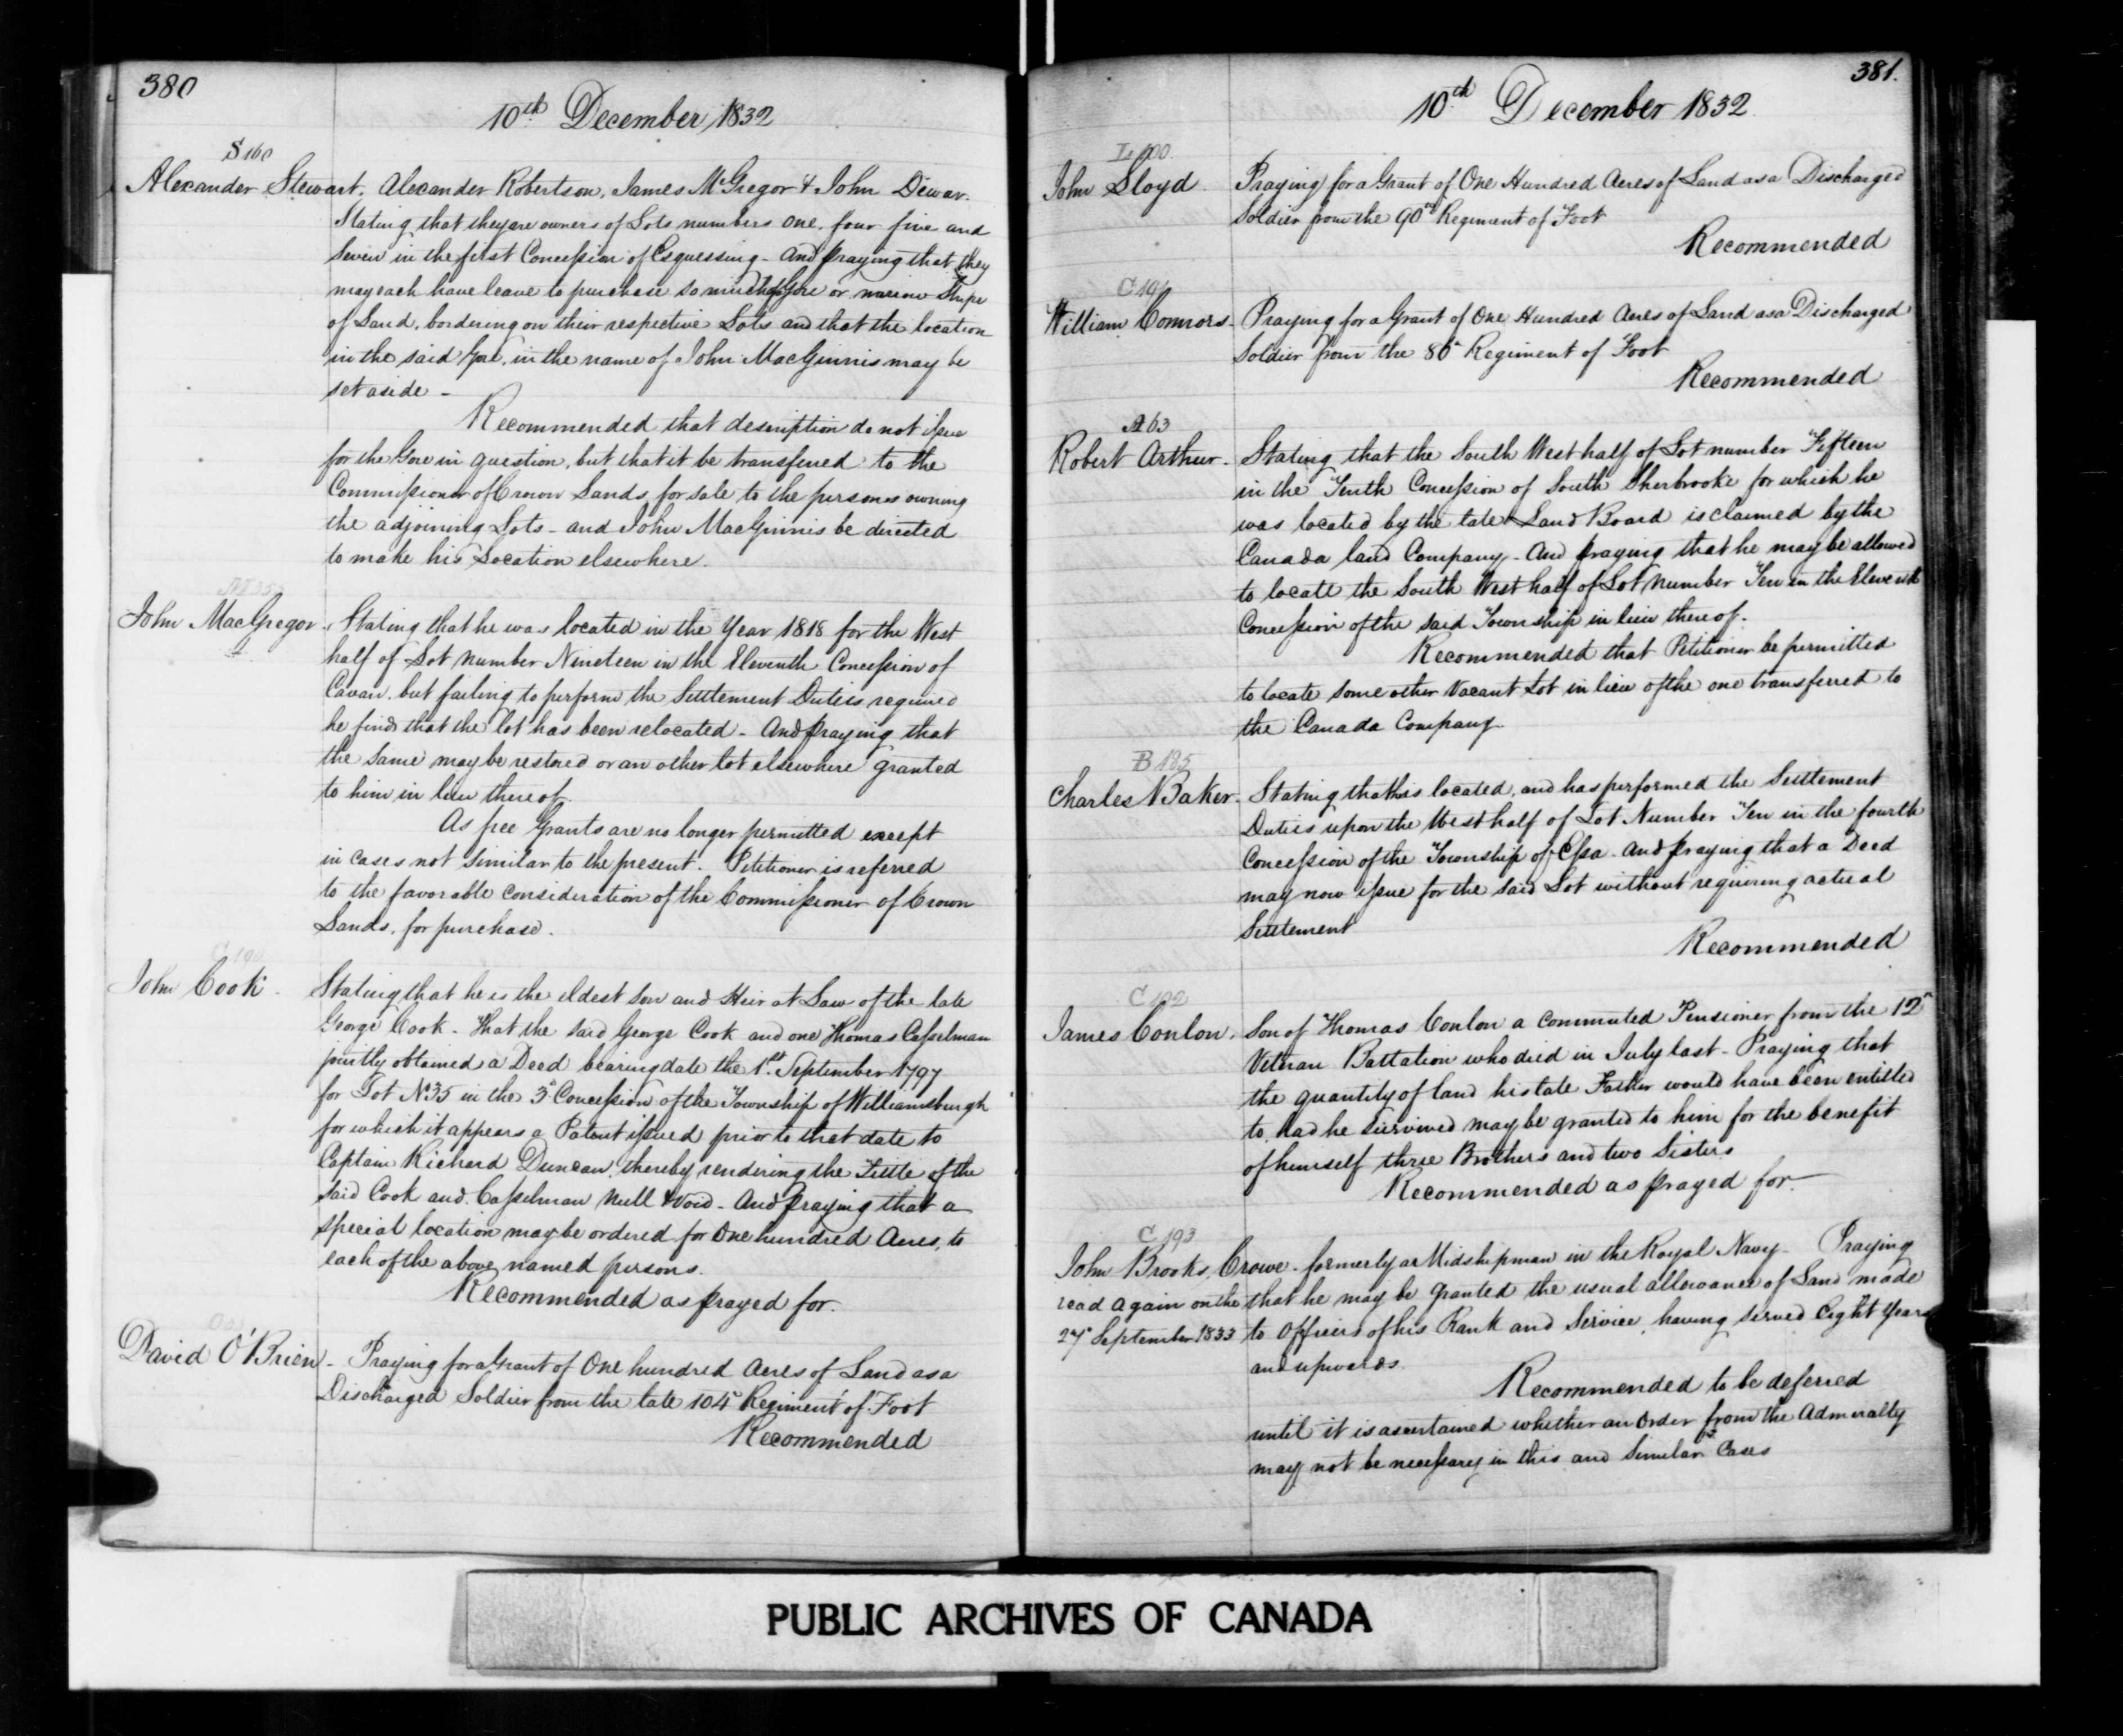 380
10th December 1832
S 160
Alexander Stewart. Alexander Robertson, James McGregor & John Dewar.
Stating that they are owners of Lots numbers one, four five and
Seven in the first Concession of Esquessing - And praying that they
may each have leave to purchase so much of Gore or narrow Stripe
of Land, bordering on their respective Lots and that the location
in the said Gore, in the name of John MacGinnis may be
set aside -
Recommended that description do not issue
for the Gore in question, but that it be transferred to the
Commissioner of Crown Lands for sale to the persones owning
the adjoining Lots - and John MacGinnis be directed
to make his Location elsewhere.
John MacGregor. Stating that he was located in the Year 1818 for the West
half of Lot number Nineteen in the Eleventh Concession of
Cavan, but failing to perform the Settlement Duties required
he finds that the lot has been relocated - And praying that
the same may be restored or an other lot elsewhere granted
to him in lieu thereof.
As free Grants are no longer permitted except
in cases not similar to the present. Petitioner is referred
to the favorable consideration of the Commissioner of Crown
Lands, for purchase.
C 190
John Cook. Stating that he is the eldest Son and Heir at Law of the late
George Cook - That the said George Cook and one Thomas Casselman
jointly obtained a Deed bearing date the 1st September 1797
for Lot No 35 in the 3d Concession of the Township of Williamsburgh
for which it appears a Patent issued prior to that date to
Captain Richard Duncan, thereby rendering the Title of the
said Cook and Casselman null & Void - And praying that a
special location may be ordered for One hundred Acres, to
each of the above named persons.
Recommended as prayed for.
David O'Brien - Praying for a Grant of One hundred Acres of Land as a
Discharged Soldier from the late 104th Regiment of Foot
Recommended
381.
10th December 1832
L 100
John Lloyd. Praying for a Grant of One Hundred Acres of Land as a Discharged
Soldier from the 90th Regiment of Foot
Recommended
William Connors - Praying for a Grant of One Hundred Acres of Land as a Discharged
Soldier from the Regiment of Foot
Recommended
A 63
Robert Arthur - Stating that the South West half of Lot number Fifteen
in the Tenth Concession of South Sherbrooke for which he
was located by the late Land Board is claimed by the
Canada land Company - And praying that he may be allowed
to locate the South West half of Lot Number Ten in the Eleventh
Concession of the said Township in lieu thereof.
Recommended that Petitioner be permitted
to locate some other Vacant Lot in lieu of the one transferred to
the Canada Company.
B 185
Charles Baker. Stating that is located, and has performed the Settlement
Duties upon the West half of Lot Number Ten in the fourth
Concession of the Township of Essa - And praying that a Deed
may now issue for the said Lot without requiring actual
Settlement
Recommended
C 192
James Conlon. Son of Thomas Conlon a commuted Pensioner from the 12th
Veteran Battation who died in July last - Praying that
the quantity of land his late Father would have been entitled
to, had he survived may be granted to him for the benefit
of himself three Brothers and two Sisters
Recommended as prayed for.
C 193
John Brooks Crowe - formerly a Midshipman in the Royal Navy - Praying
read again on the that he may be granted the usual allowance of Land made
27th September 1833 to Officers of his Rank and Service, having served Eight Years
and upwards.
Recommended to be deferred
until it is ascertained whether an Order from the Admiralty
may not be necessary in this and similar Cases
PUBLIC ARCHIVES OF CANADA